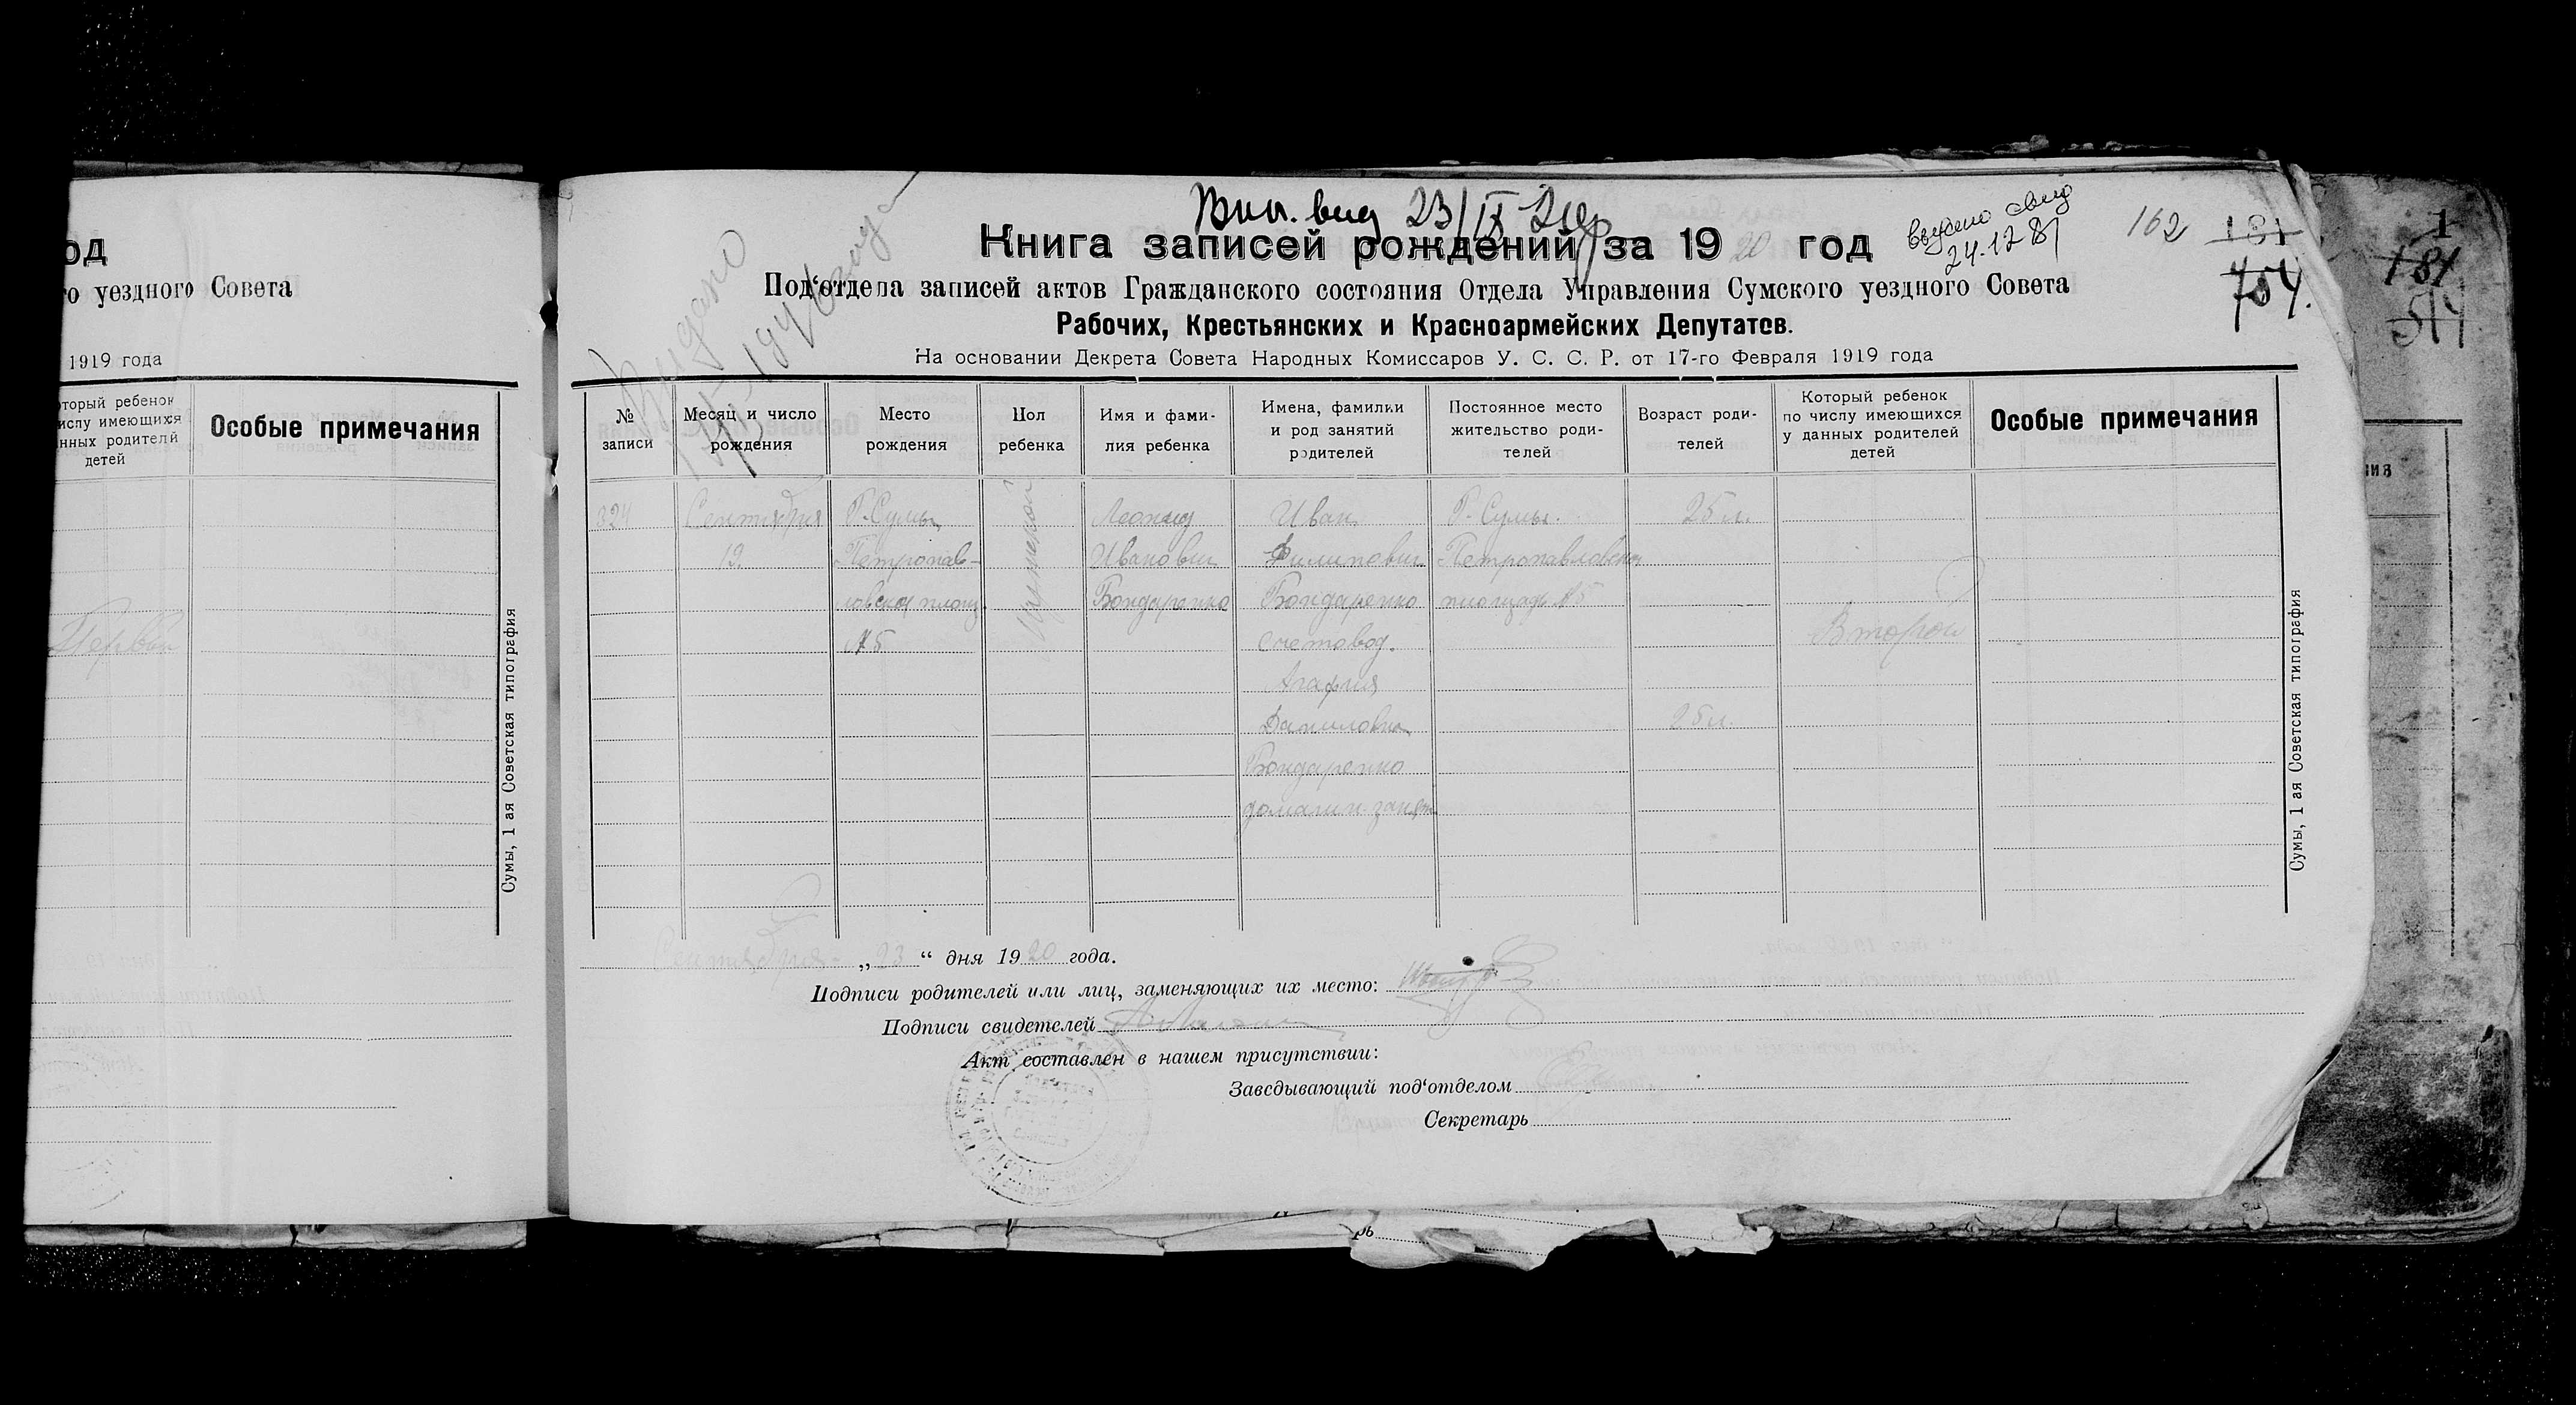 од
го уездного Совета
1919 года
оторый ребенок
числу имеющихся
анных родителй
детей
Особые примечания
Первый
Сумы, 1 ая Советская типография
Вып. вид 23/IX 20
Выдано
1946 года
выдано свид
24.12.81
162
181
754.
1
181
514
Книга записей рождений за 1920 год
Под‘отдела записей актов Гражданского состояния Отдела Управления Сумского уездного Совета
Рабочих, Крестьянских и Красноармейских Депутатов.
На основании Декрета Совета Народных Комиссаров У. С. С. Р. от 17-го Февраля 1919 года
№
записи
Месяц и число
рождения
Место
рождения
Пол
ребенка
Имя и фами-
лия ребенка
Имена, фамилии
и род занятий
родителей
Постоянное место
жительство роди-
телей
Возраст роди-
телей
Который ребенок
по числу имеющихся
у данных родителей
детей
Особые примечания
324
Сентября
12.
Г. Сумы
Петропав-
ловская площ.
№5
мужской
Леонид
Иванович
Бондаренко
Иван
Филипович
Бондаренко
счетовод.
Агафия
Даниловна
Бондаренко
домашн. занят.
Г. Сумы.
Петропавловская
площадь №5
25 л.
25 л.
Второй
Сумы, 1 ая Советская типография
Сентября „23“ дня 1920 года.
Подписи родителей или лиц, заменяющих их место:
Подписи свидетелей
Акт составлен в нашем присутствии:
Заведывающий под‘отделом
Секретарь